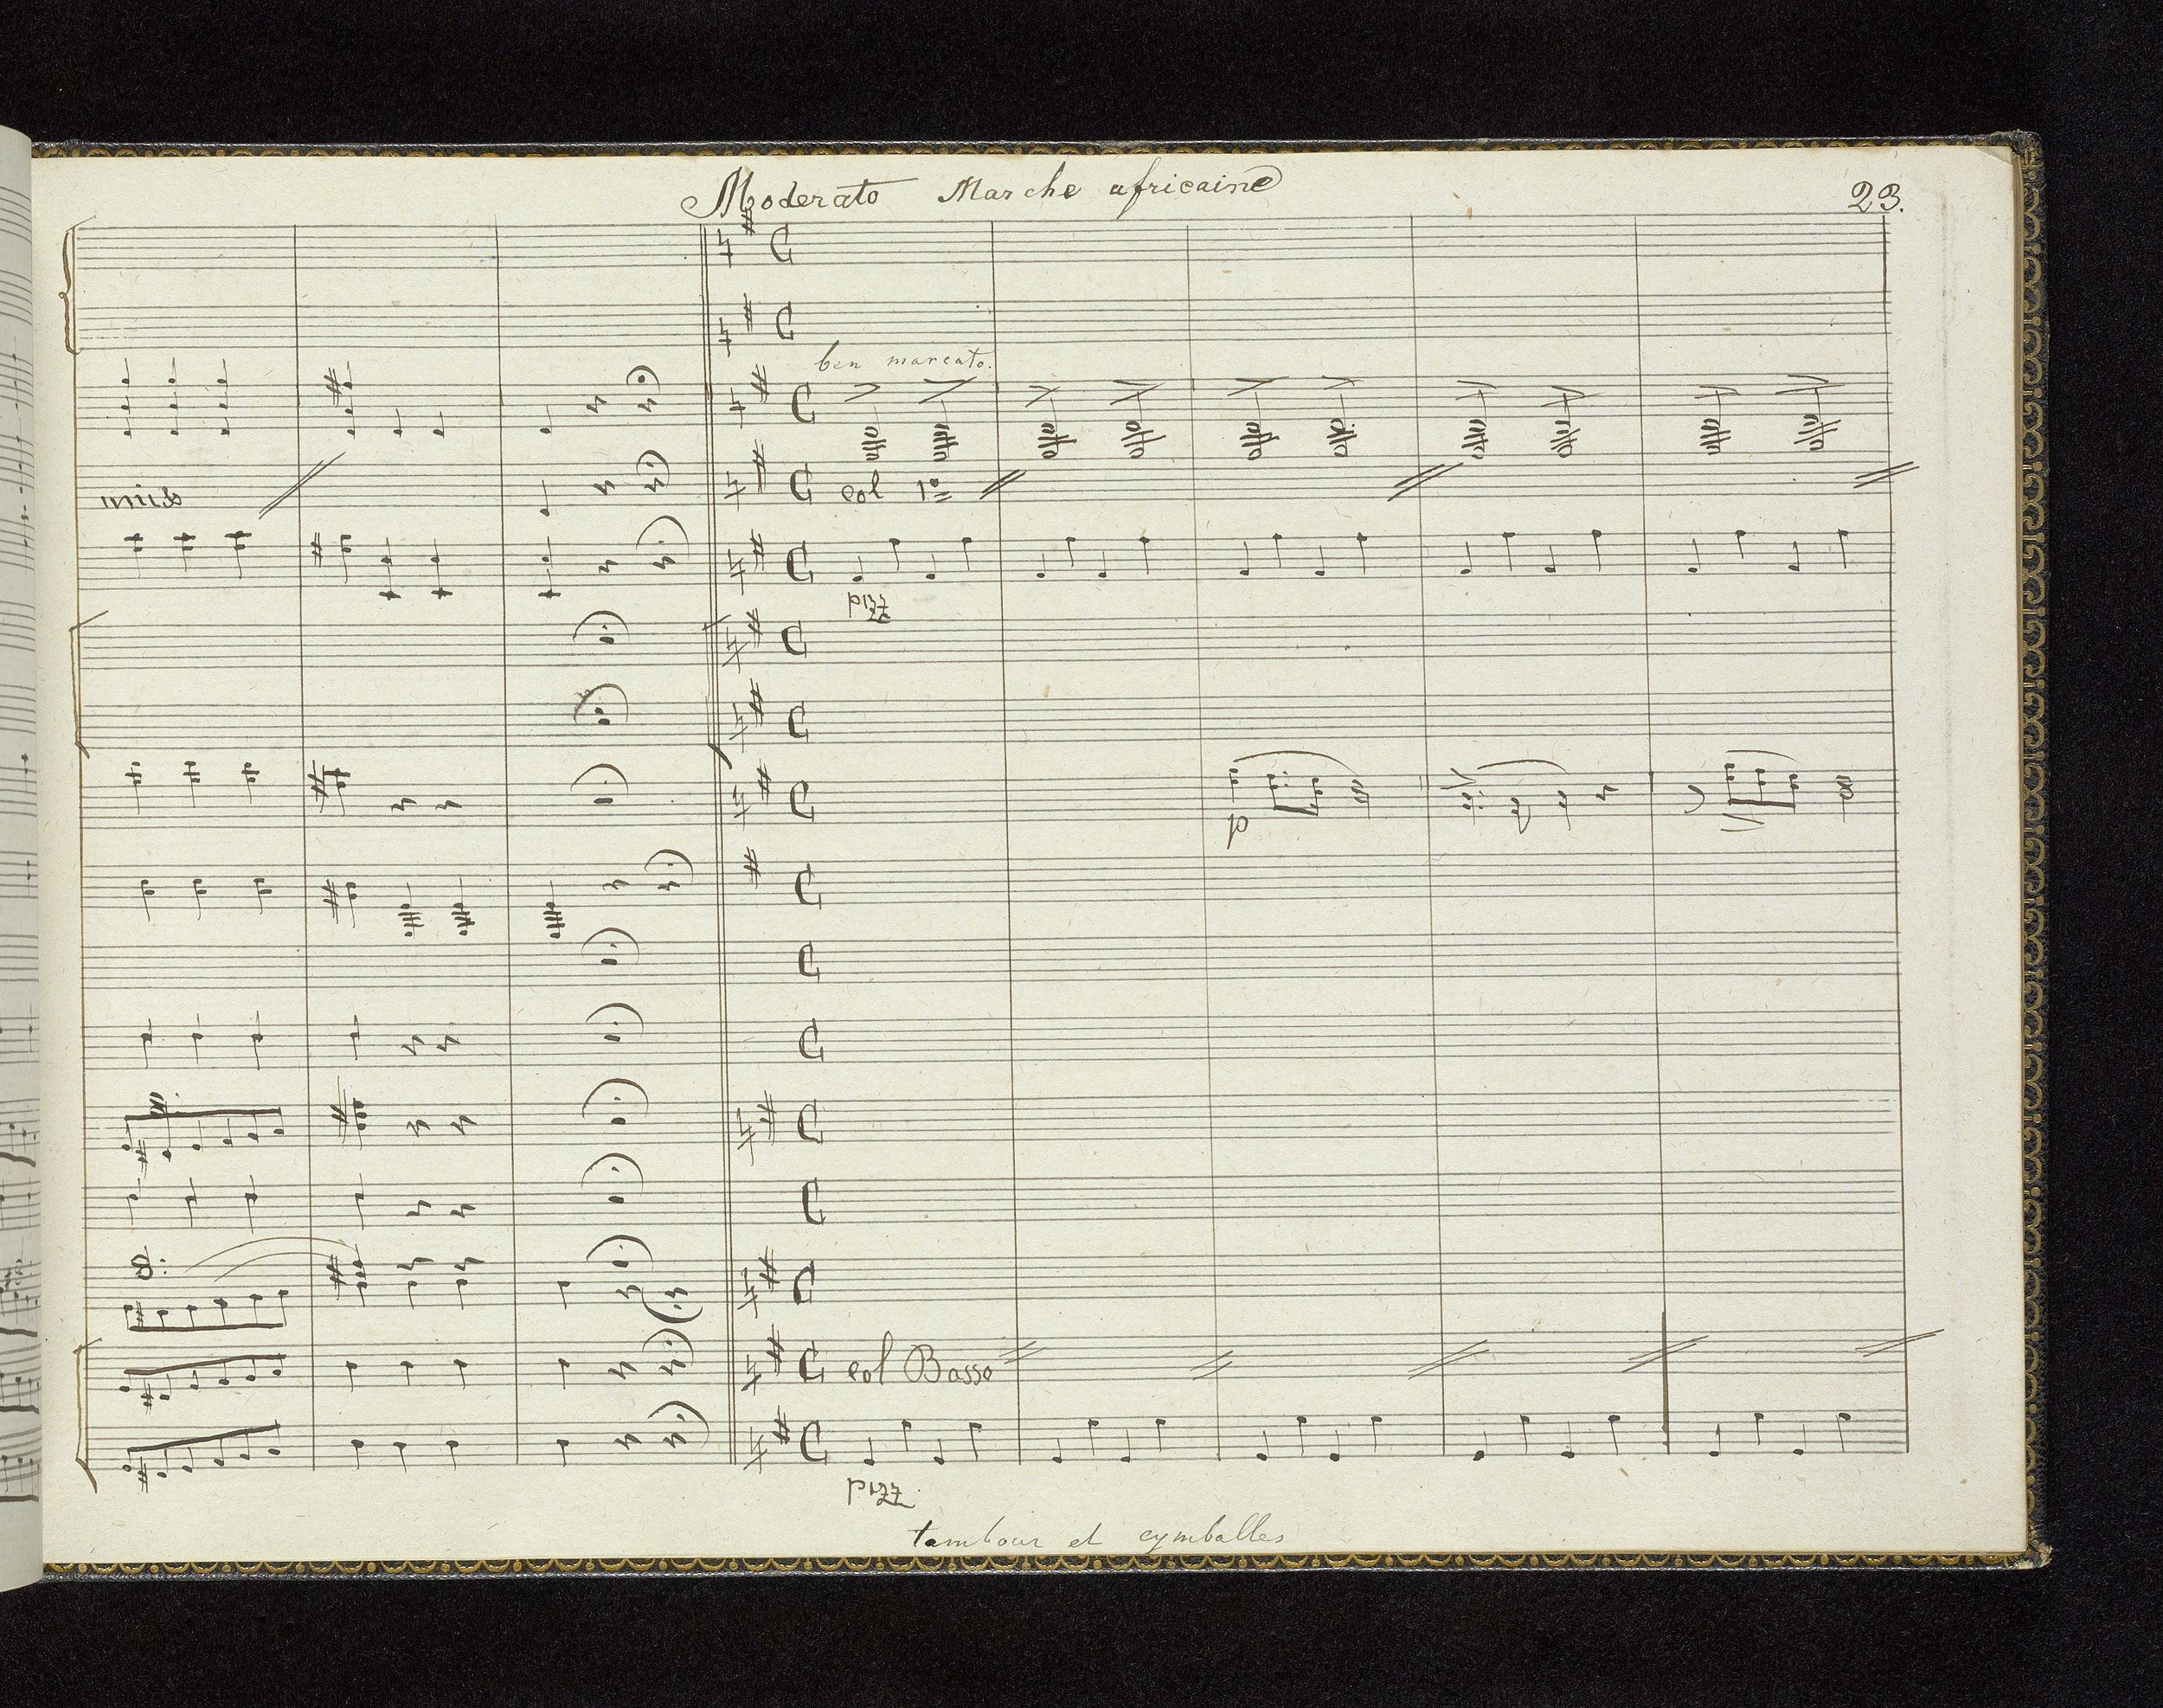 Moderato Marche africaine
23.
ben marcato.
unis
col 1º
pizz
p
col Basso
pizz
tambour et cymballes